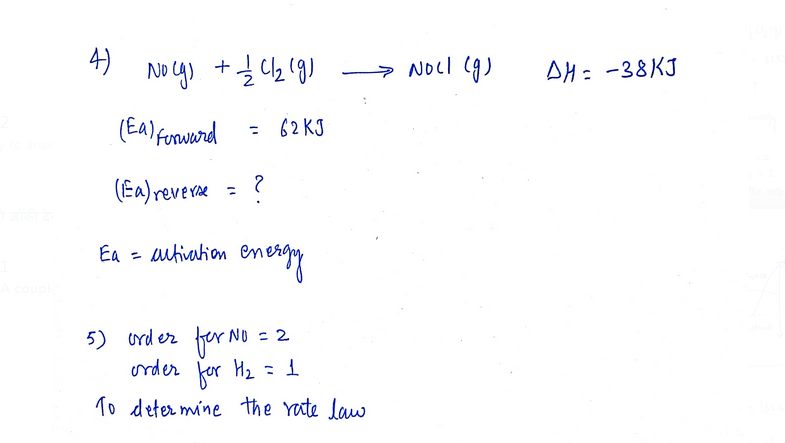 4) NO(g) + 1/2 Cl2 (g) ⟶ NOCl (g) ΔH = -38KJ
(Ea)forward = 62KJ
(Ea)reverse = ?
Ea = activation energy
5) order for NO = 2
order for H2 = 1
To determine the rate law